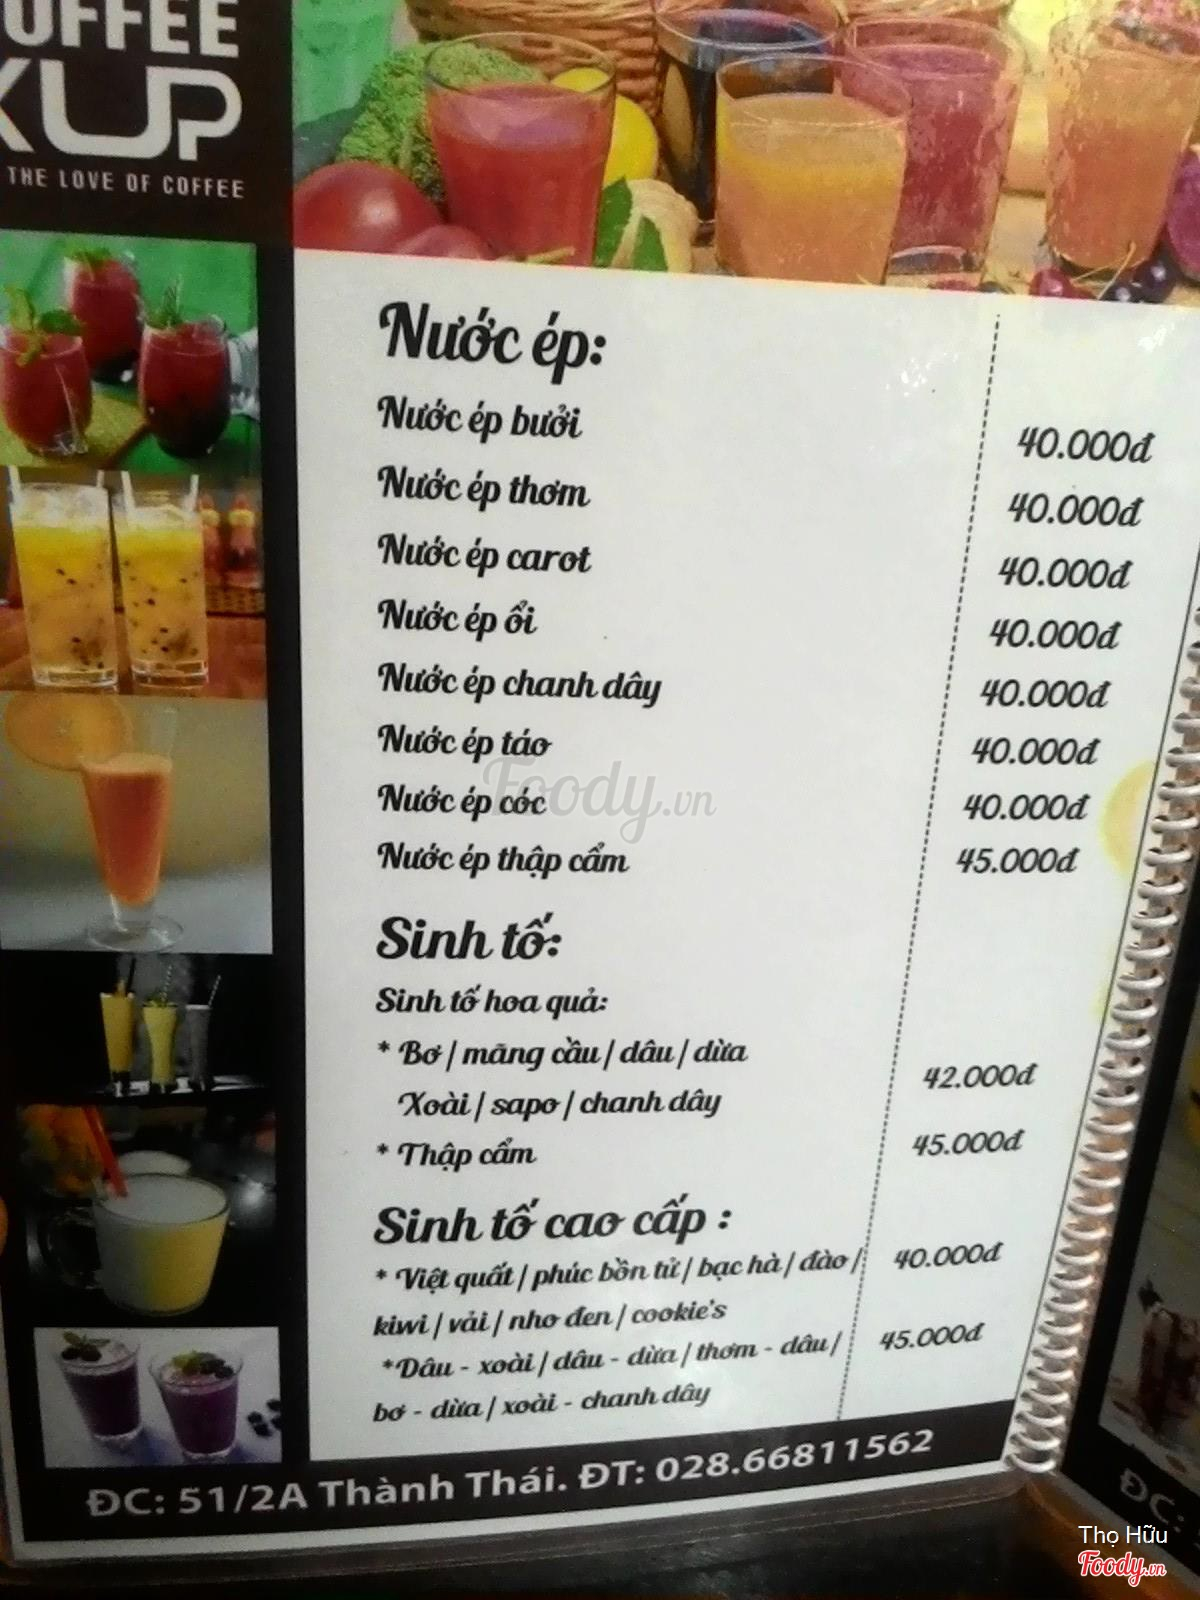 OFFEE
KUP
THE LOVE OF COFFEE
Nước ép:
Nước ép bưởi 40.000đ
Nước ép thơm 40.000đ
Nước ép carot 40.000đ
Nước ép ổi 40.000đ
Nước ép chanh dây 40.000đ
Nước ép táo 40.000đ
Nước ép cóc 40.000đ
Nước ép thập cẩm 45.000đ
Foody.vn
Sinh tố:
Sinh tố hoa quả:
* Bơ / mãng cầu / dâu / dừa
Xoài / sapo / chanh dây 42.000đ
* Thập cẩm 45.000đ
Sinh tố cao cấp :
* Việt quất / phúc bồn tử / bạc hà / đào / 40.000đ
kiwi / vải / nho đen / cookie's
*Dâu - xoài / dâu - dừa / thơm - dâu / 45.000đ
bơ - dừa / xoài - chanh dây
ĐC: 51/2A Thành Thái. ĐT: 028.66811562
ĐC:
Thọ Hữu
Foody.vn